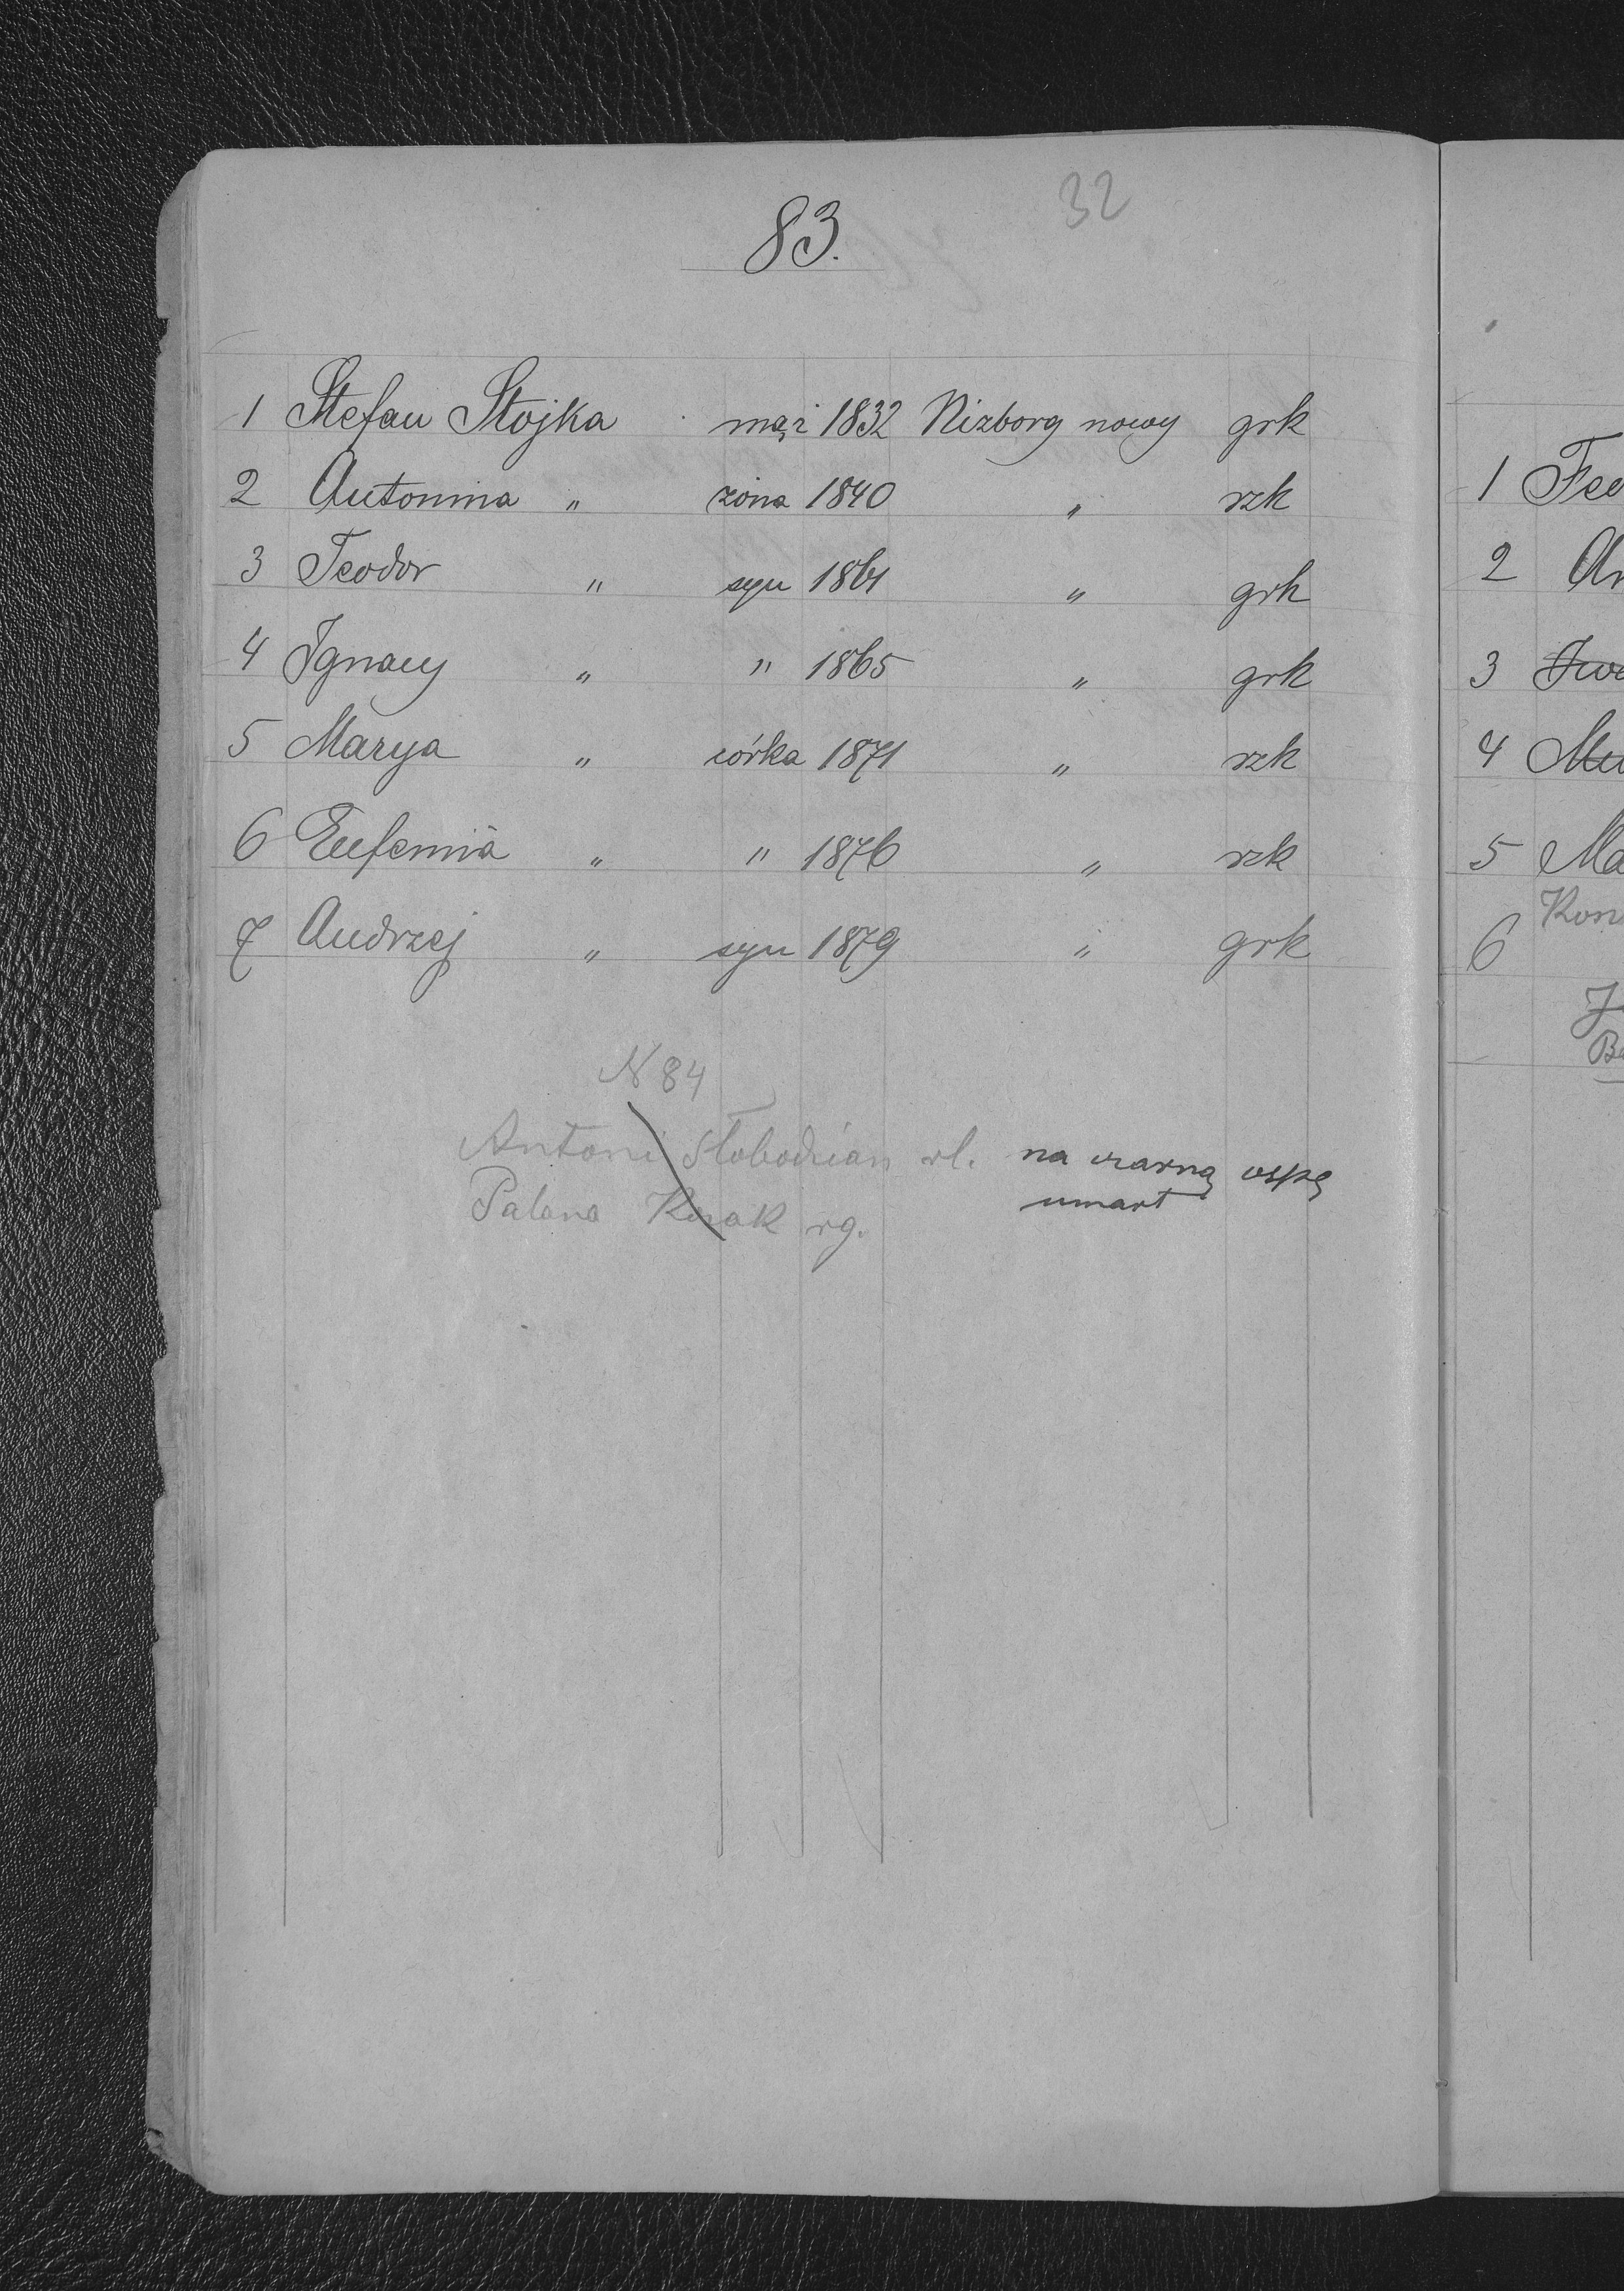 83.
32
1 Stefan Stojka mąż 1832 Nizborg nowy grk
2 Antonina " żona 1840 " rzk
3 Teodor " syn 1861 " grk
4 Ignacy " " 1865 " grk
5 Marya " córka 1871 " rzk
6 Eufemia " " 1876 " rzk
7 Andrzej " syn 1879 " grk
N 84
Antoni Słobodzian rl. na czarną ospę
umart
Palana rg.
1
2
3
4
5
6